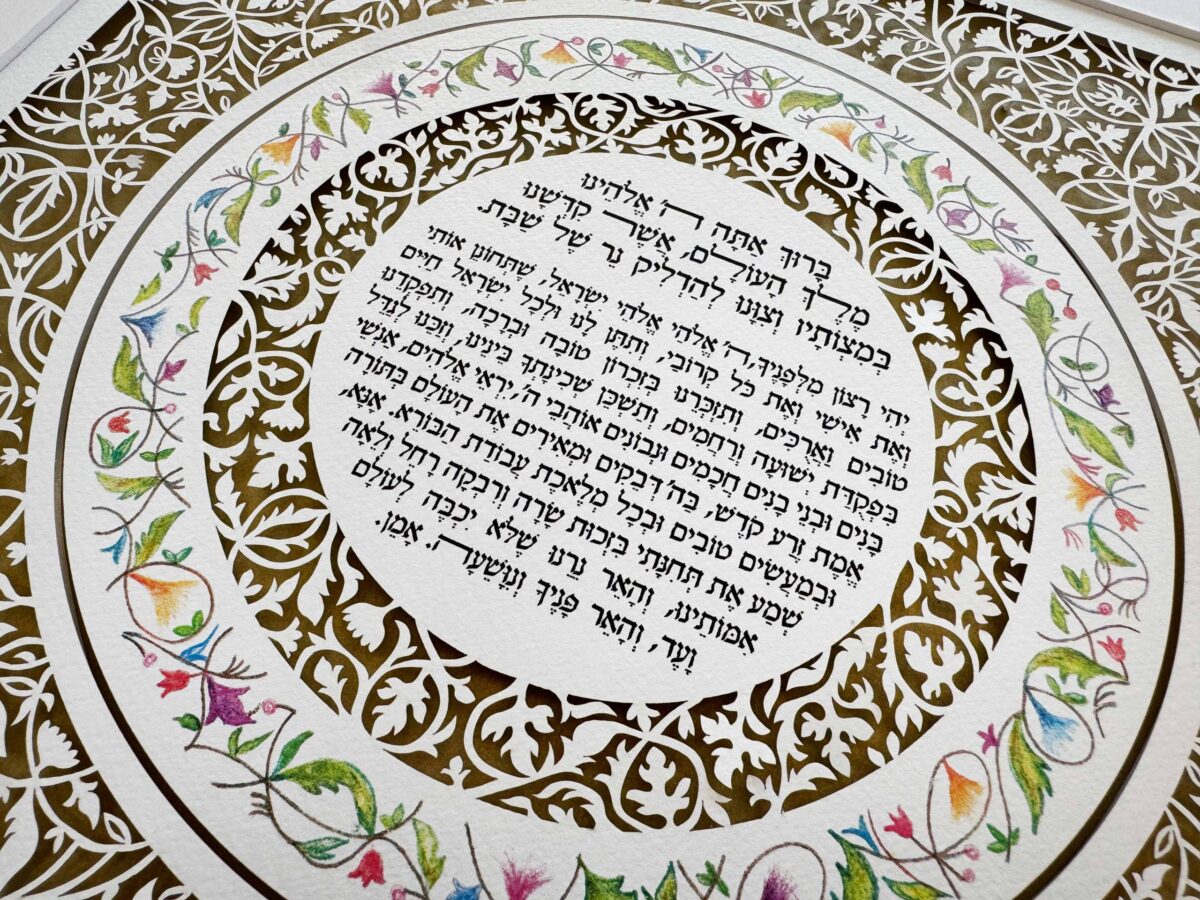 בָּרוּךְ אַתָּה ה' אֱלֹהֵינוּ
מֶלֶךְ הָעוֹלָם, אֲשֶׁר קִדְּשָׁנוּ
בְּמִצְוֹתָיו וְצִוָּנוּ לְהַדְלִיק נֵר שֶׁל שַׁבָּת.
יְהִי רָצוֹן מִלְּפָנֶיךָ, ה' אֱלֹהַי אֱלֹהֵי יִשְׂרָאֵל, שֶׁתְּחוֹנֵן אוֹתִי
וְאֶת אִישִׁי וְאֶת כָּל קְרוֹבַי, וְתִתֵּן לָנוּ וּלְכָל יִשְׂרָאֵל חַיִּים
טוֹבִים וַאֲרֻכִּים, וְתִזְכְּרֵנוּ בְּזִכְרוֹן טוֹבָה וּבְרָכָה, וְתִפְקְדֵנוּ
בִּפְקֻדַּת יְשׁוּעָה וְרַחֲמִים, וְתַשְׁכֵּן שְׁכִינָתְךָ בֵּינֵינוּ, וְזַכֵּנוּ לְגַדֵּל
בָּנִים וּבְנֵי בָנִים חֲכָמִים וּנְבוֹנִים אוֹהֲבֵי ה', יִרְאֵי אֱלֹהִים, אַנְשֵׁי
אֱמֶת זֶרַע קֹדֶשׁ, בַּה' דְּבֵקִים וּמְאִירִים אֶת הָעוֹלָם בַּתּוֹרָה
וּבְמַעֲשִׂים טוֹבִים וּבְכָל מְלֶאכֶת עֲבוֹדַת הַבּוֹרֵא. אָנָּא,
שְׁמַע אֶת תְּחִנָּתִי בִּזְכוּת שָׂרָה וְרִבְקָה רָחֵל וְלֵאָה
אִמּוֹתֵינוּ, וְהָאֵר נֵרֵנוּ שֶׁלֹּא יִכְבֶּה לְעוֹלָם
וָעֶד, וְהָאֵר פָּנֶיךָ וְנִוָּשֵׁעָה. אָמֵן.